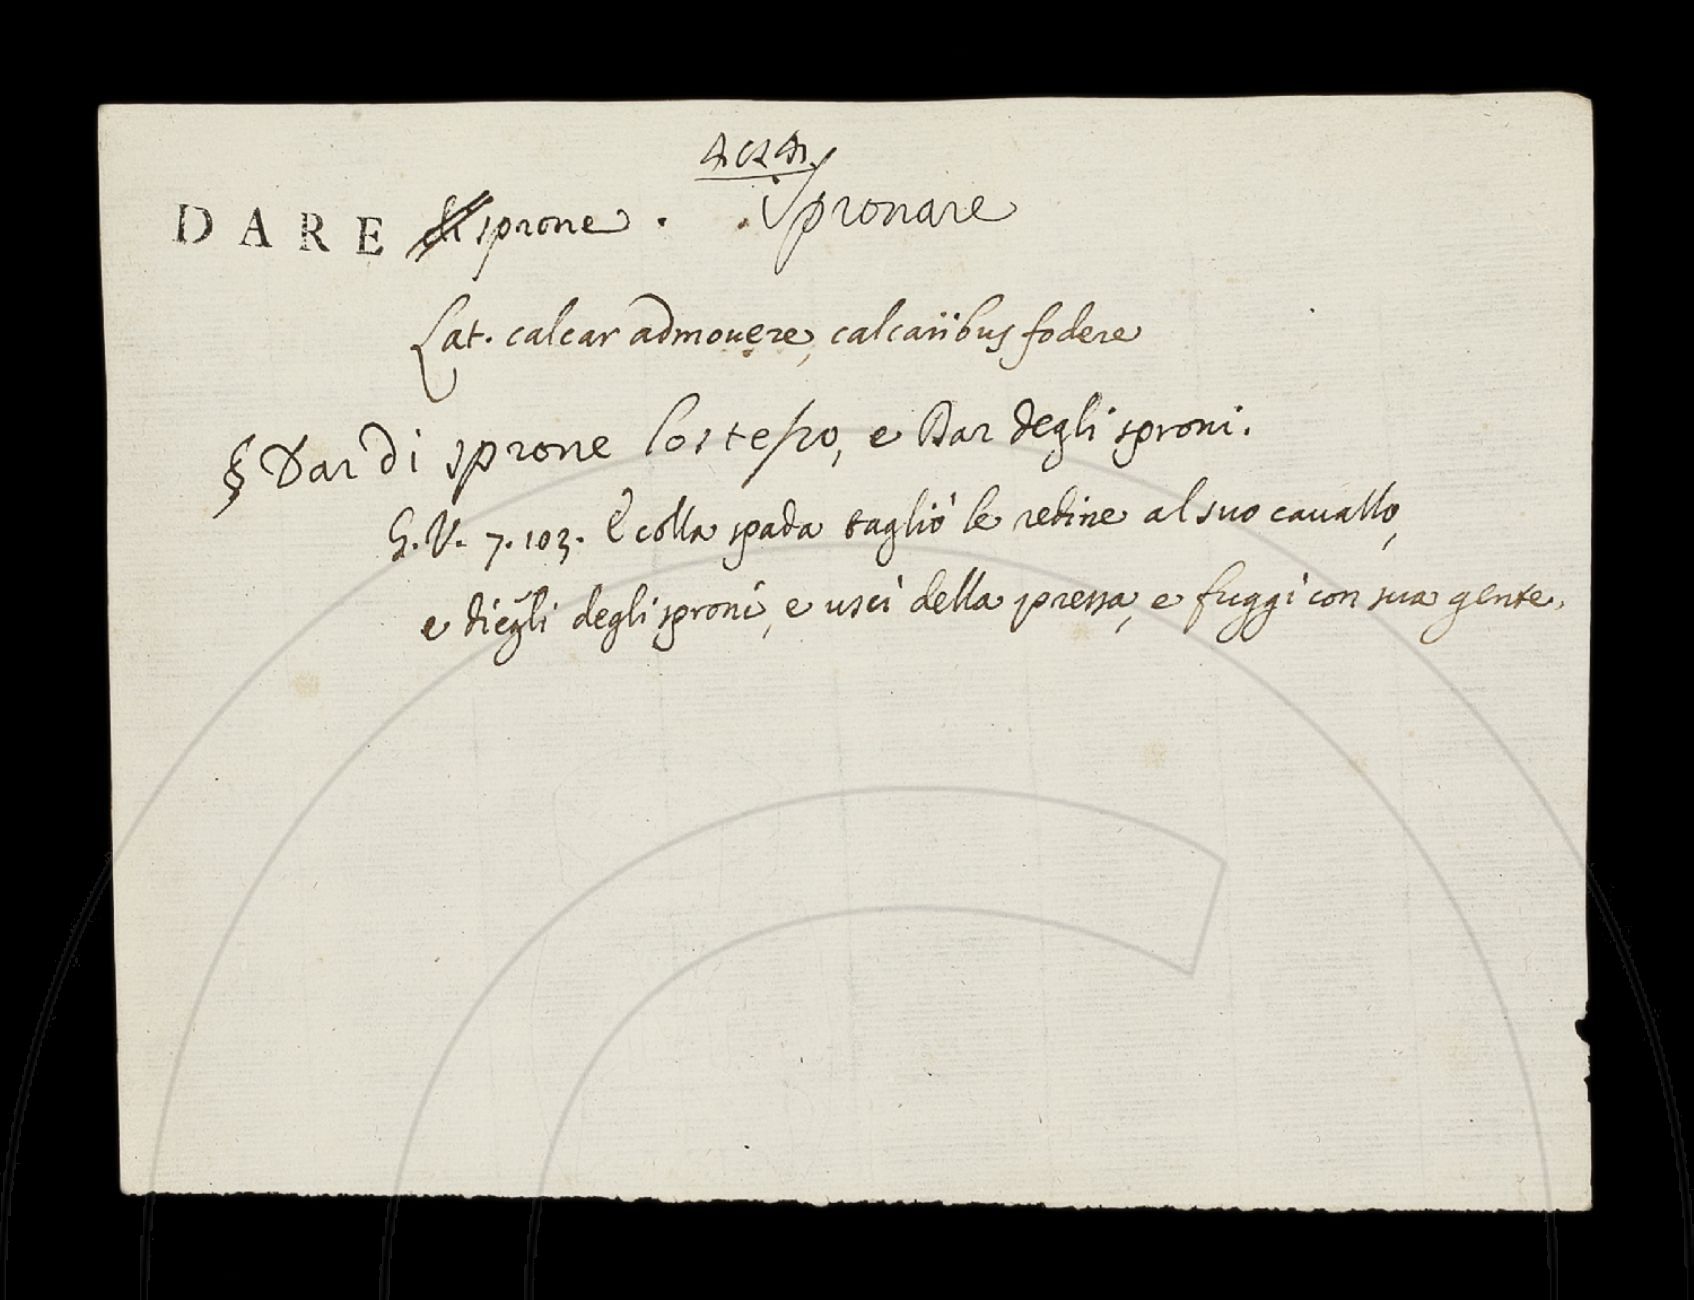 DARE di sprone. Spronare
Lat. calcar admouere, calcaribus fodere
§ Dar di sprone lo stesso, e Dar degli sproni.
G. V. 7. 103. E colla spada tagliò le redine al suo cauallo,
e diegli degli sproni, e uscì della pressa, e fuggì con sua gente.